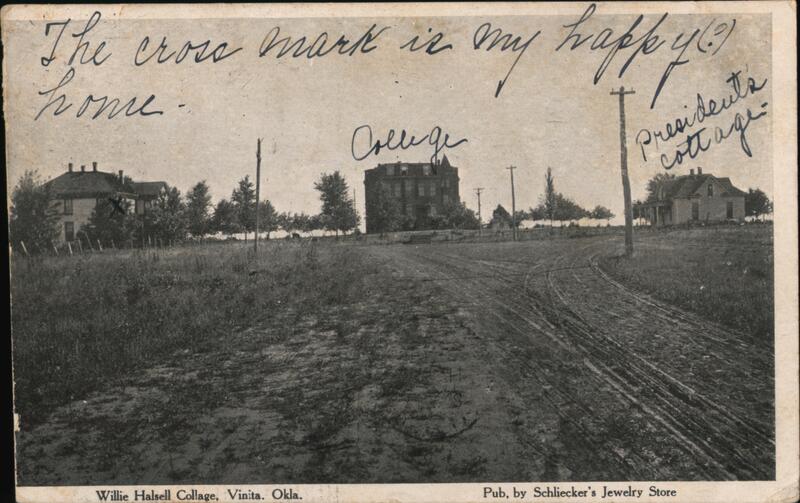 The cross mark is my happy(?)
home.
College
President's
cottage.
X
Willie Halsell Collage, Vinita. Okla.
Pub, by Schliecker's Jewelry Store